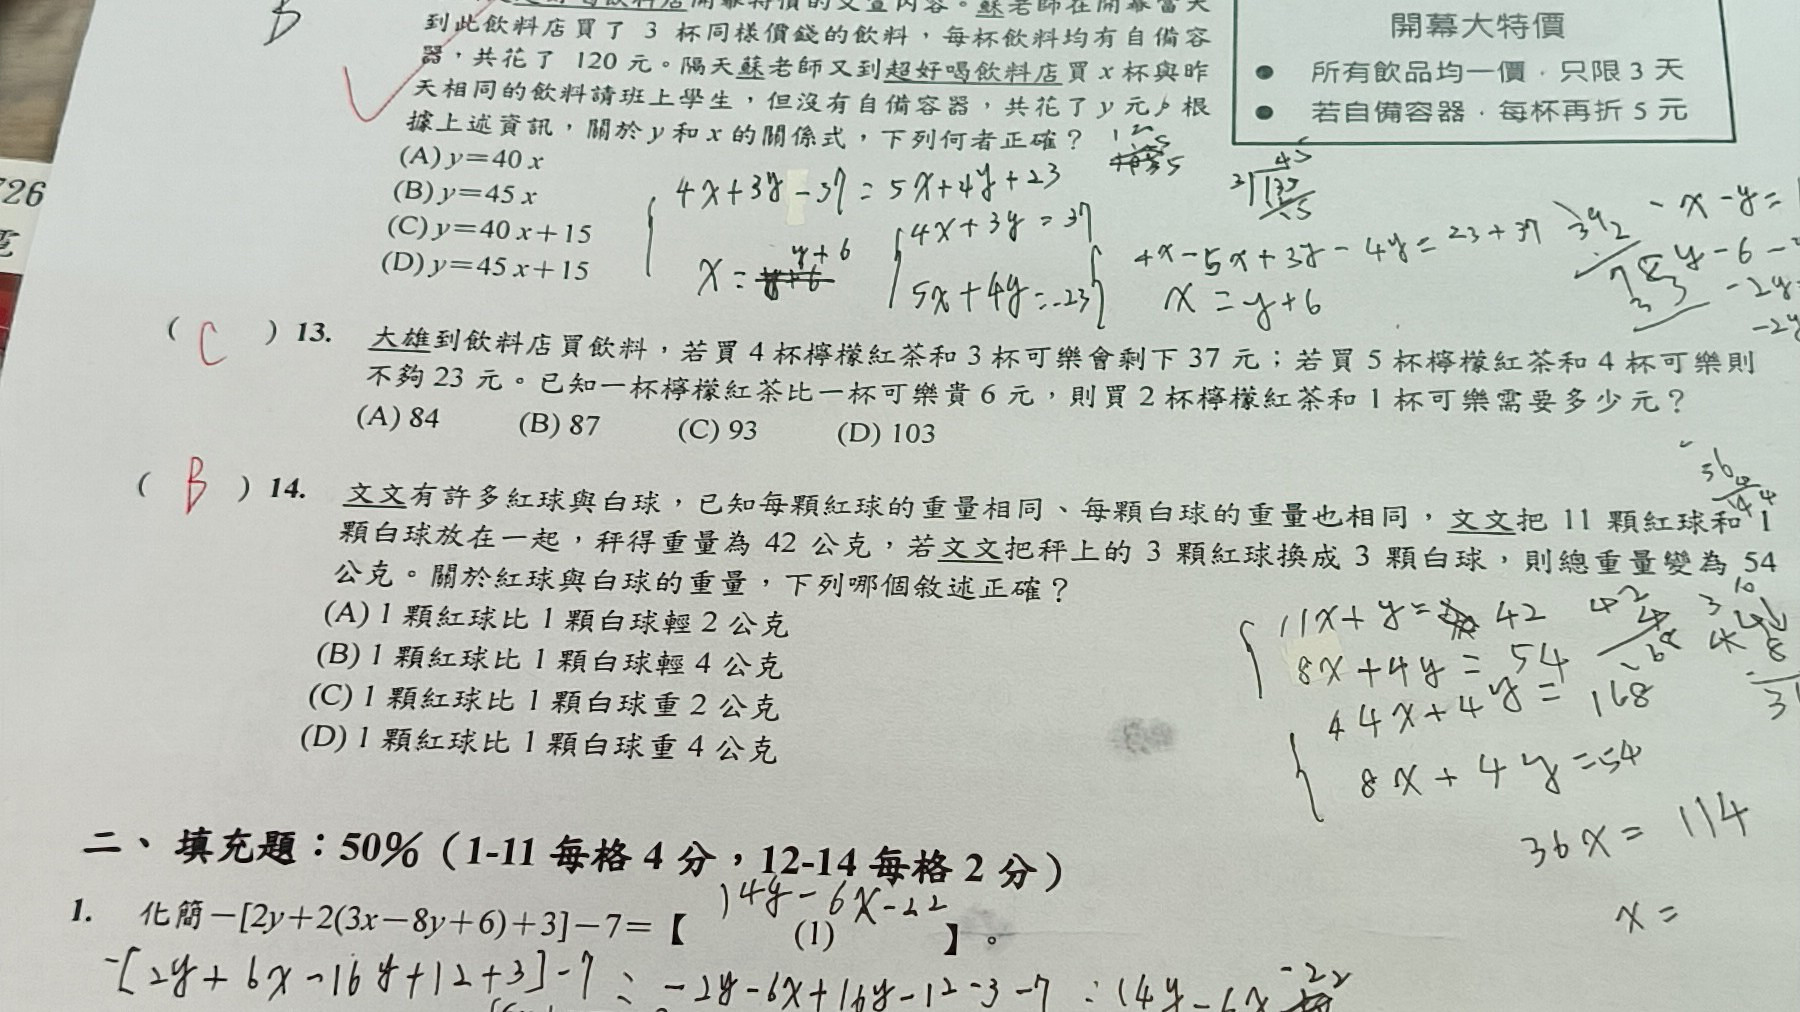 B
到此飲料店買了 3 杯同樣價錢的飲料，每杯飲料均有自備容
器，共花了 120 元。隔天蘇老師又到超好喝飲料店買 x 杯與昨
天相同的飲料請班上學生，但沒有自備容器，共花了 y 元，根
據上述資訊，關於 y 和 x 的關係式，下列何者正確？
(A) y＝40 x
(B) y＝45 x
(C) y＝40 x＋15
(D) y＝45 x＋15
開幕大特價
● 所有飲品均一價．只限 3 天
● 若自備容器．每杯再折 5 元
726
4x+3y-37=5x+4y+23
x= y+6
4x+3y=37
5x+4y=-23
4x-5x+3y-4y=23+37
x=y+6
-x-y=
y-6-
-2y
( C ) 13. 大雄到飲料店買飲料，若買 4 杯檸檬紅茶和 3 杯可樂會剩下 37 元；若買 5 杯檸檬紅茶和 4 杯可樂則
不夠 23 元。已知一杯檸檬紅茶比一杯可樂貴 6 元，則買 2 杯檸檬紅茶和 1 杯可樂需要多少元？
(A) 84 (B) 87 (C) 93 (D) 103
( B ) 14. 文文有許多紅球與白球，已知每顆紅球的重量相同、每顆白球的重量也相同，文文把 11 顆紅球和 1
顆白球放在一起，秤得重量為 42 公克，若文文把秤上的 3 顆紅球換成 3 顆白球，則總重量變為 54
公克。關於紅球與白球的重量，下列哪個敘述正確？
(A) 1 顆紅球比 1 顆白球輕 2 公克
(B) 1 顆紅球比 1 顆白球輕 4 公克
(C) 1 顆紅球比 1 顆白球重 2 公克
(D) 1 顆紅球比 1 顆白球重 4 公克
11x+y= 42
8x+4y=54
44x+4y=168
8x+4y=54
36x=114
x=
二、填充題：50%（1-11 每格 4 分，12-14 每格 2 分）
14y-6x-22
1. 化簡－[2y＋2(3x－8y＋6)＋3]－7＝【 (1) 】。
-[2y+6x-16y+12+3]-7 = -2y-6x+16y-12-3-7 =14y-6x -22